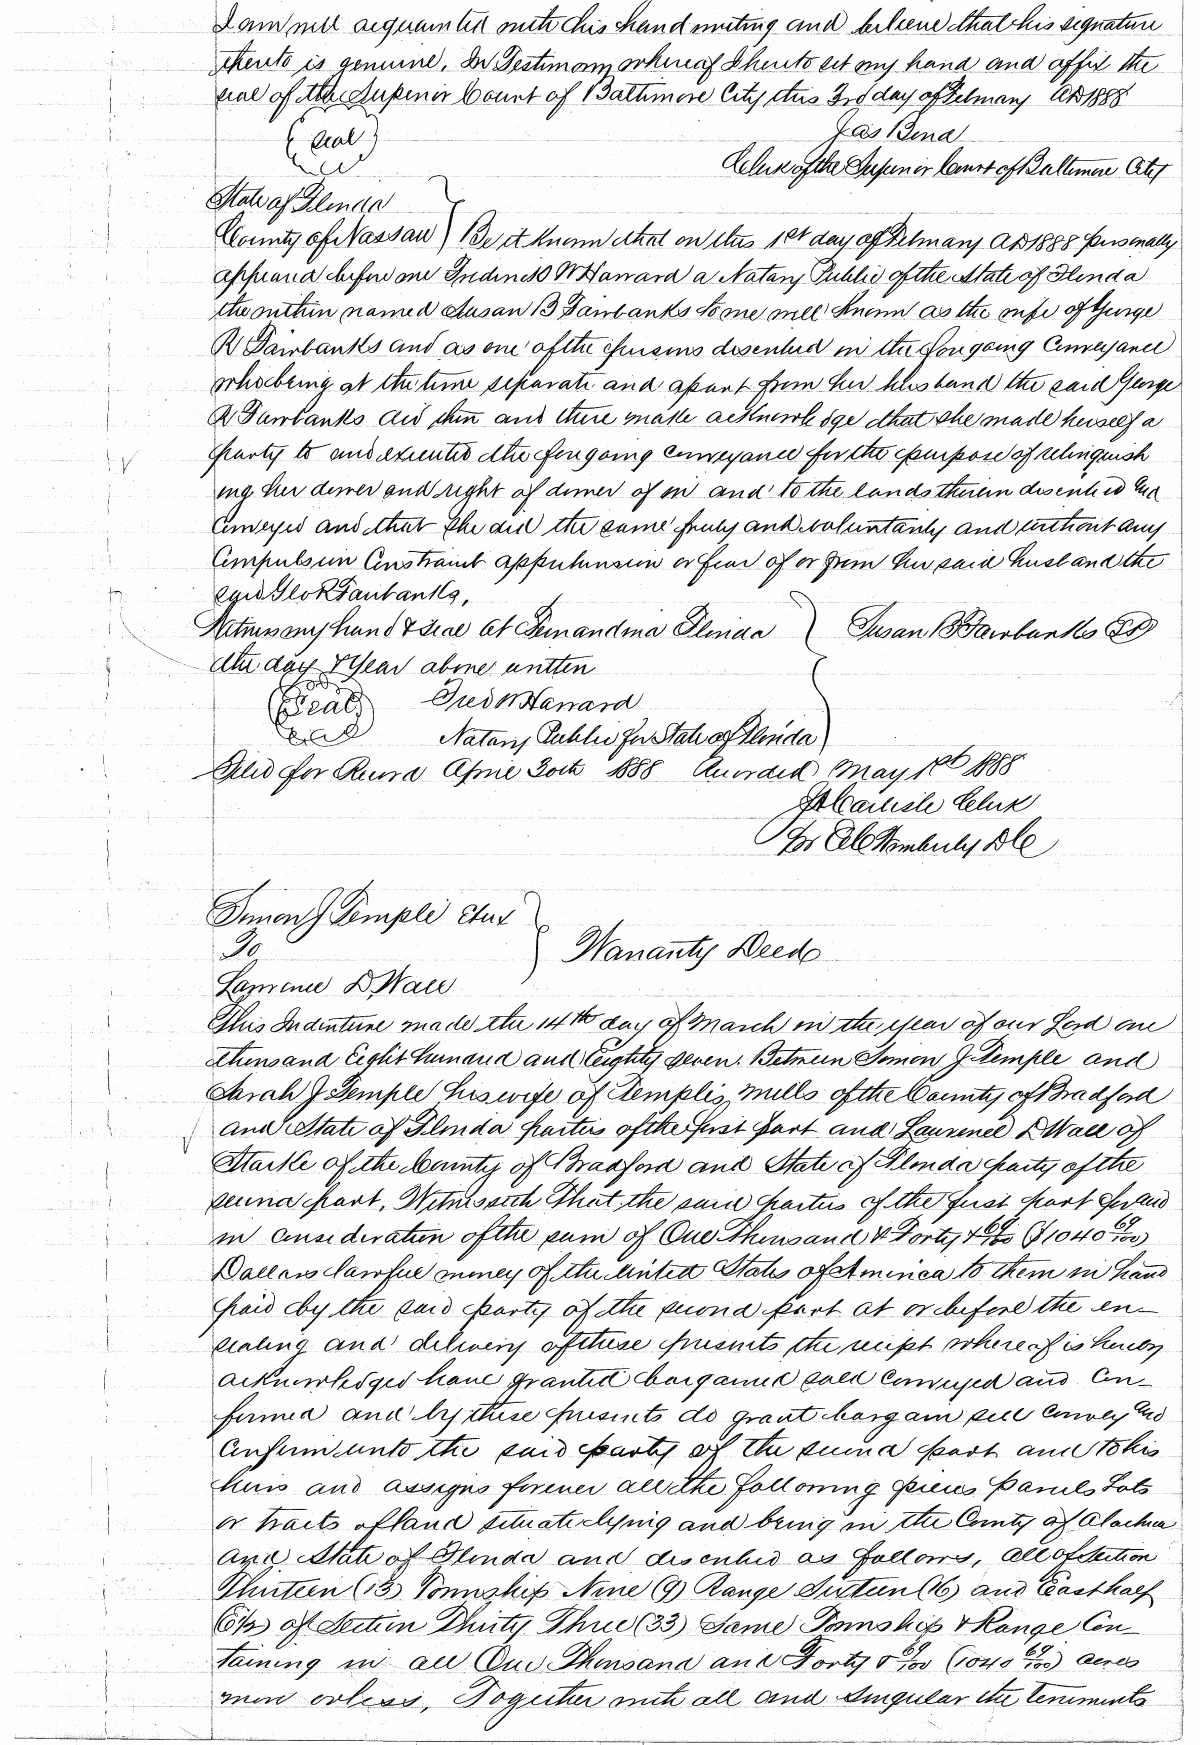 I am well acquainted with his hand writing and believe that his signature
thereto is genuine. In Testimony whereof I hereto set my hand and affix the
seal of the Superior Court of Baltimore City this 3rd day of February AD 1888
(Seal) Jas Bond
Clerk of the Superior Court of Baltimore City
State of Florida
County of Nassau } Be it Known that on this 1st day of February AD 1888 personally
appeared before me Frederick W Harvard a Notary Public of the State of Florida
the within named Susan B Fairbanks to me well known as the wife of George
R Fairbanks and as one of the persons described in the foregoing Conveyance
who being at the time separate and apart from her husband the said George
R Fairbanks did then and there make acknowledge that she made herself a
party to and executed the foregoing Conveyance for the purpose of relinquish
ing her dower and right of dower of in and to the lands therein described and
Conveyed and that she did the same freely and voluntarily and without any
Compulsion Constraint apprehension or fear of or from her said husband the
said Geo R Fairbanks,
Witness my hand & seal at Fernandina Florida } Susan B Fairbanks
the day & Year above written
(Seal) Fred W Harvard
Notary Public for State of Florida
Filed for Record April 30th 1888 Recorded May 1st 1888
J A Carlisle Clerk
for Wimberly DC
Simon J Temple Etux
To } Warranty Deed
Lawrence D Wall
This Indenture made the 14th day of March in the year of our Lord one
thousand Eight hundred and Eighty seven. Between Simon J Temple and
Sarah J Temple his wife of Temples Mills of the County of Bradford
and State of Florida parties of the first part and Laurence D Wall of
Starke of the County of Bradford and State of Florida party of the
second part, Witnesseth That the said parties of the first part for and
in consideration of the sum of One Thousand & Forty & 69/100 ($1040 69/100)
Dollars lawful money of the United States of America to them in hand
paid by the said party of the second part at or before the en-
sealing and delivery of these presents the receipt whereof is hereby
acknowledged have granted bargained sold conveyed and Con-
firmed and by these presents do grant bargain sell convey and
Confirm unto the said party of the second part and to his
heirs and assigns forever all the following pieces parcels Lots
or tracts of land situate lying and being in the County of Alachua
and State of Florida and described as follows, All of Section
Thirteen (13) Township Nine (9) Range Sixteen (16) and East half
(E 1/2) of Section Thirty Three (33) Same Township & Range Con-
taining in all One Thousand and Forty & 69/100 (1040 69/100) acres
more or less, Together with all and singular the tenements